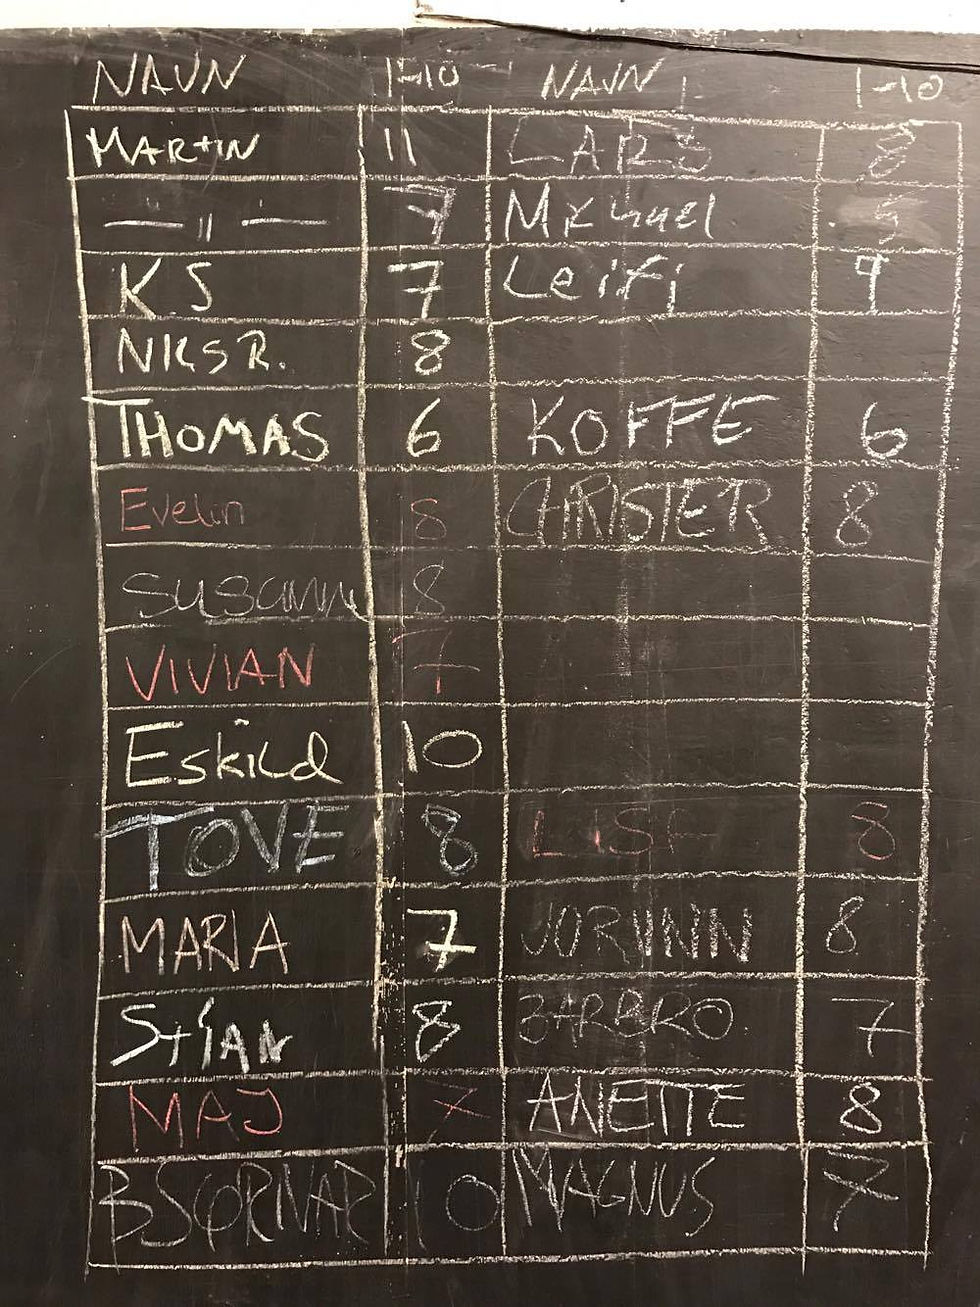 NAVN 1-10 NAVN 1-10
MARTIN 11 LARS 8
— " — 7 Mikhael 5
K.S 7 Leifi 9
NKSR. 8
THOMAS 6 KOFFE 6
Evelin 8 CHRISTER 8
SUSANN 8
VIVIAN 7
Eskild 10
TOVE 8 LISA 8
MARIA 7 JORUNN 8
StIAN 8 BARBRO 7
MAJ 7 ANETTE 8
BJØRNAR 10 MAGNUS 7